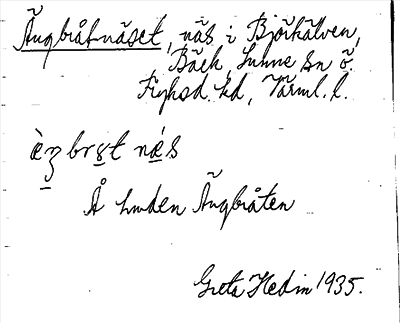 Ängbråtnäset, näs i Björkälven,
Bäck, Sunne sn ö.
Fryksd. hd, Värml. l.
Å huden Ängbråten
Greta Hedin 1935.